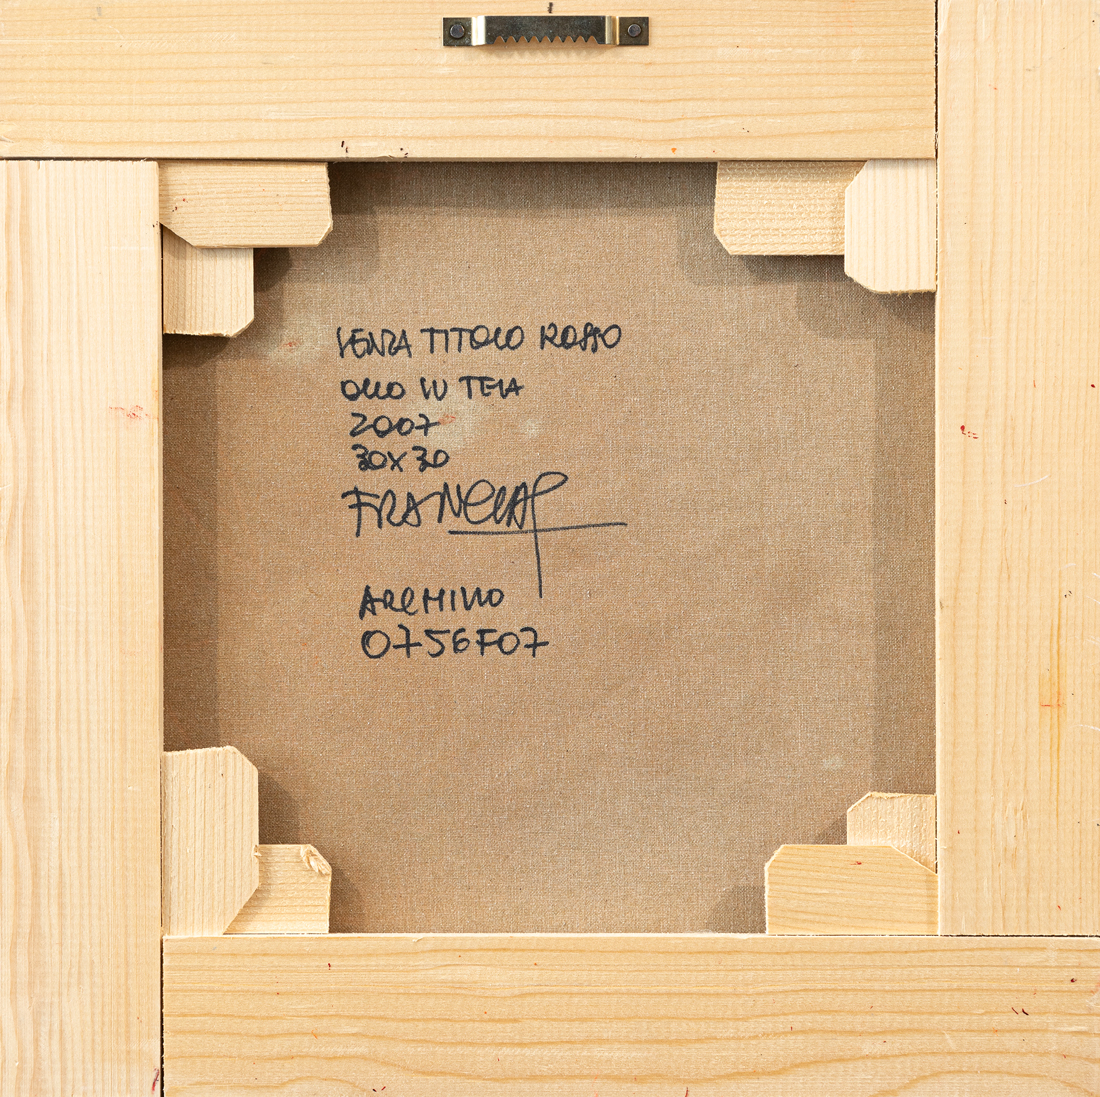 SENZA TITOLO ROSSO
OLIO SU TELA
2007
30X30
ARCHIVIO
0756F07